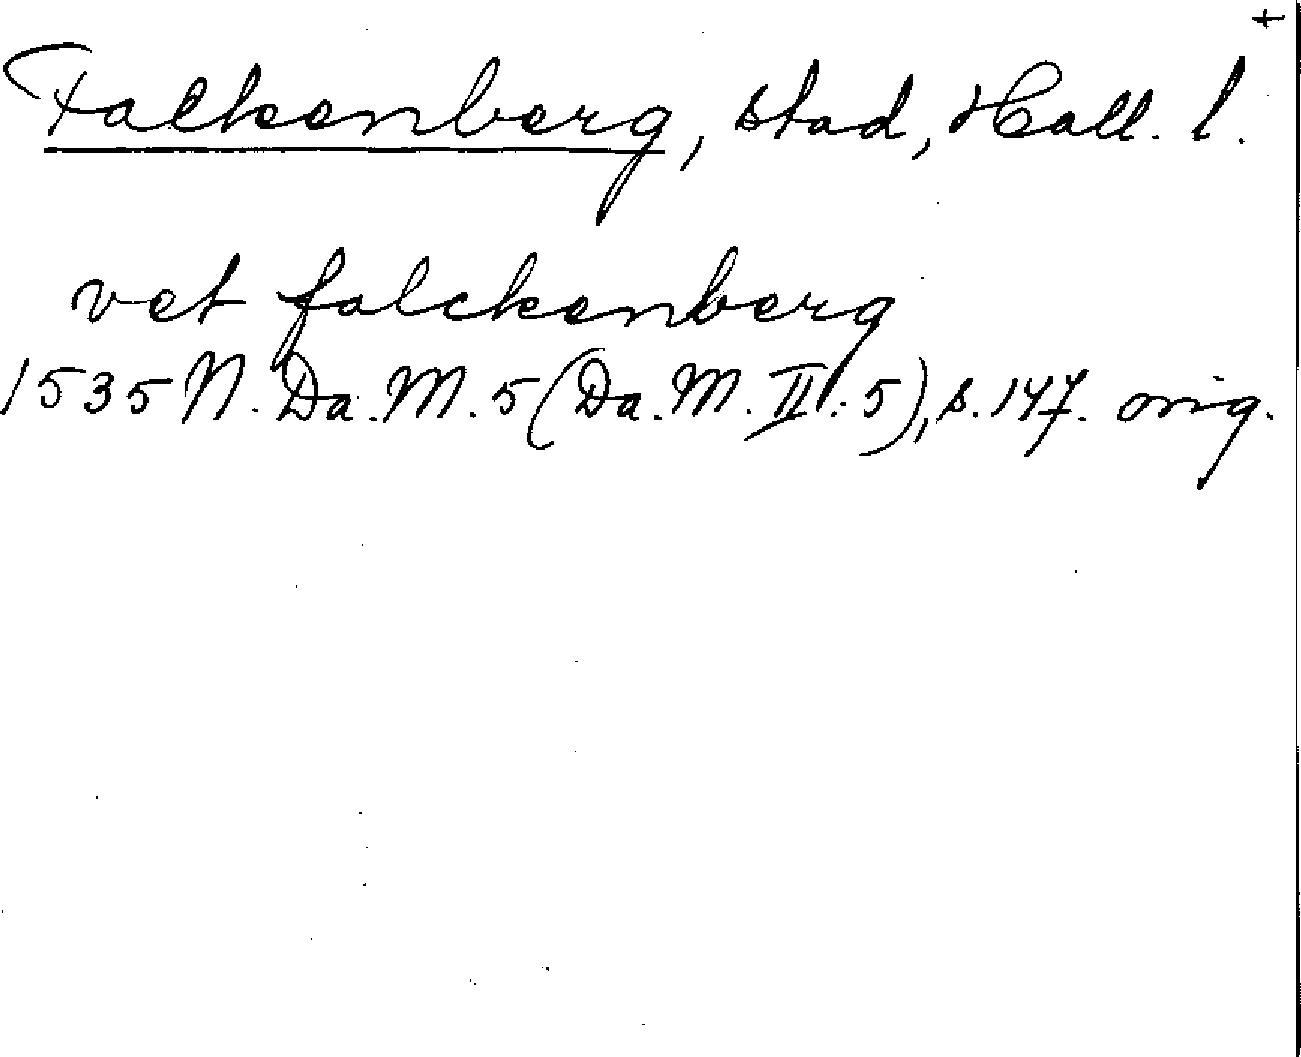 +
Falkenberg, stad, Hall. l.
vet falckenberg
1535 N. Da. M. 5 (Da. M. II. 5), s. 147. orig.